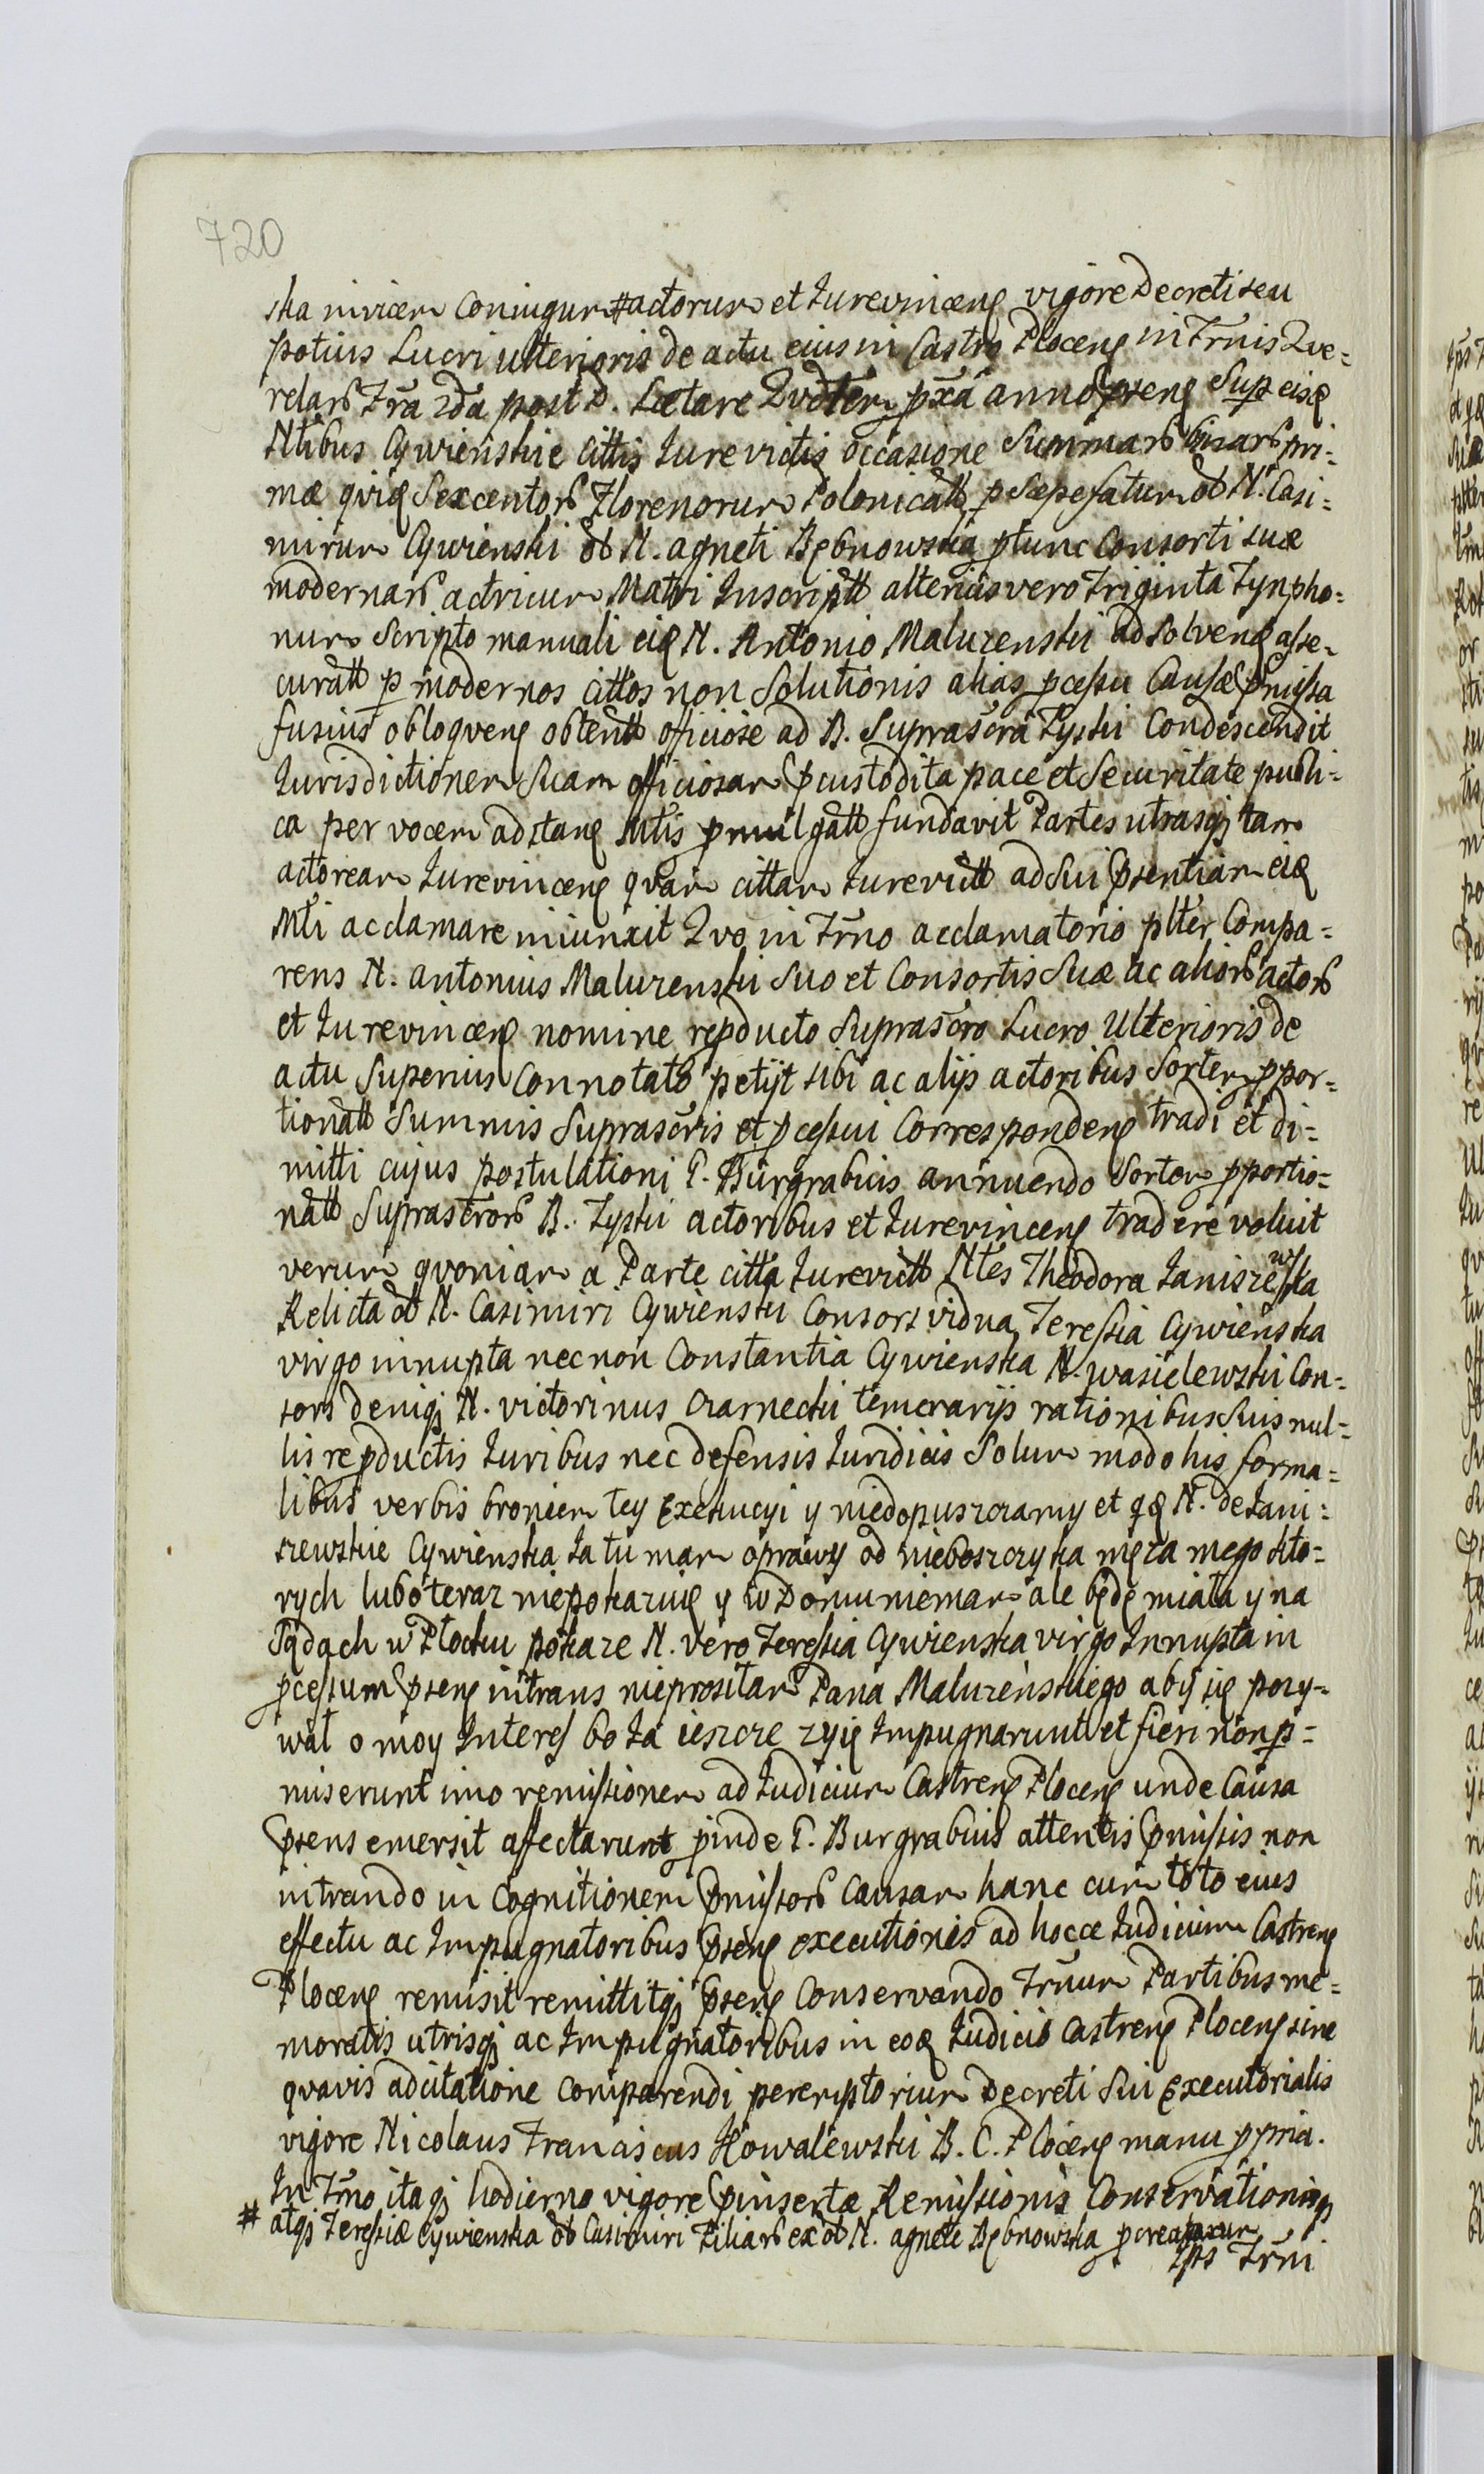 720
ska invicem Coniugum # actorum et Jurevincen vigore Decreti seu
potius Lucri ulterioris de actu eius in Castro Plocen in Trnis Qve=
relar Fra 2da post D. Lætare Qvdter pxa anno psen Sup eisd
Ntibus Cywienskie cittis Jurevictis occasione Summar binar pri=
mæ qvid Sexcentor Florenorum Polonicall p sæpefatum ob N. Casi=
mirum Cywienski ob N. agneti Rębnowska ptunc Consorti suæ
modernar actricum Matri Inscriptt alterius vero Triginta Tynpho=
num Scripto manuali eid N. Antonio Maluzenski ad solvend asse=
curatt p modernos cittos non Solutionis alias pcessu Causæ pmissa
fusius obloqven obtentt officiose ad B. Suprascra Zyski Condescendit
Jurisdictionem Suam officiosam pcustodita pace et Securitate publi=
ca per vocem adstan Mtis pmulgatt fundavit Partes utrasqz tam
actoream Jurevincen qvam cittam Jurevictt ad Sui psentiam eid
Mti acclamare iniunxit Qvo in Trno acclamatorio plter Compa=
rens N. antonius Maluzenski Suo et Consortis Suæ ac alior actor
et Jurevincen nomine repducto Suprascro Lucro Ulterioris de
actu Superius Connotato petijt sibi ac alijs actoribus Sortem ppor=
tionatt Summis Suprascris et pcessui Corresponden tradi et di=
mitti cujus postulationi G. Burgrabius annuendo Sortem pportio=
natt Suprascror B. Zyski actoribus et Jurevincen tradere voluit
verum qvoniam a Parte citta Jurevictt Ntes Theodora Janiszewska
Relicta ob N. Casimiri Cywienski Consors vidua Teressia Cywienska
virgo innupta necnon Constantia Cywienska N. wasielewski Con=
sors deniqz N. victorinus Czarnecki temerarijs rationibus Suis nul=
lis repductis Juribus nec defensis Juridicis Solum modo his forma=
libus verbis broniem tey Exekucyi y niedopuszczamy et qd N. de Jani=
szewskie Cywienska Ja tu mam oprawy od nieboszczyka męza mego kto=
rych lubo teraz niepokazuię y w Domu niemam ale będę miała y na
Sądach w Płocku pokaze N. vero Teressia Cywienska virgo Innupta in
pcessum psen intrans nieprositam Pana Maluzenskiego aby się pozy=
wał o moy Interes bo Ja ieszcze zyię Impugnarunt et fieri non p=
miserunt imo remissionem ad Judicium Castren Plocen unde Causa
psens emersit affectarunt pinde G. Burgrabius attentis pmissis non
intrando in Cognitionem pmissor Causam hanc cum toto eius
effectu ac Impugnatoribus psen executionis ad hocce Judicium Castren
Plocen remisit remittitqz psen Conservando Trnum Partibus me=
moratis utrisqz ac Impugnatoribus in eod Judicio Castren Plocen sine
qvavis adcitatione Comparendi peremptorium Decreti Sui Executorialis
vigore Nicolaus Franciscus Kowalewski B. C. Plocen manu ppria.
In Trno itaqz hodierno vigore pinsertæ Remissionis Conservationisqz
# atqz Teressiæ Cywienska ob Casimiri Filiar ex ob N. agnete Rębnowska pcreatarum
Ips Trni